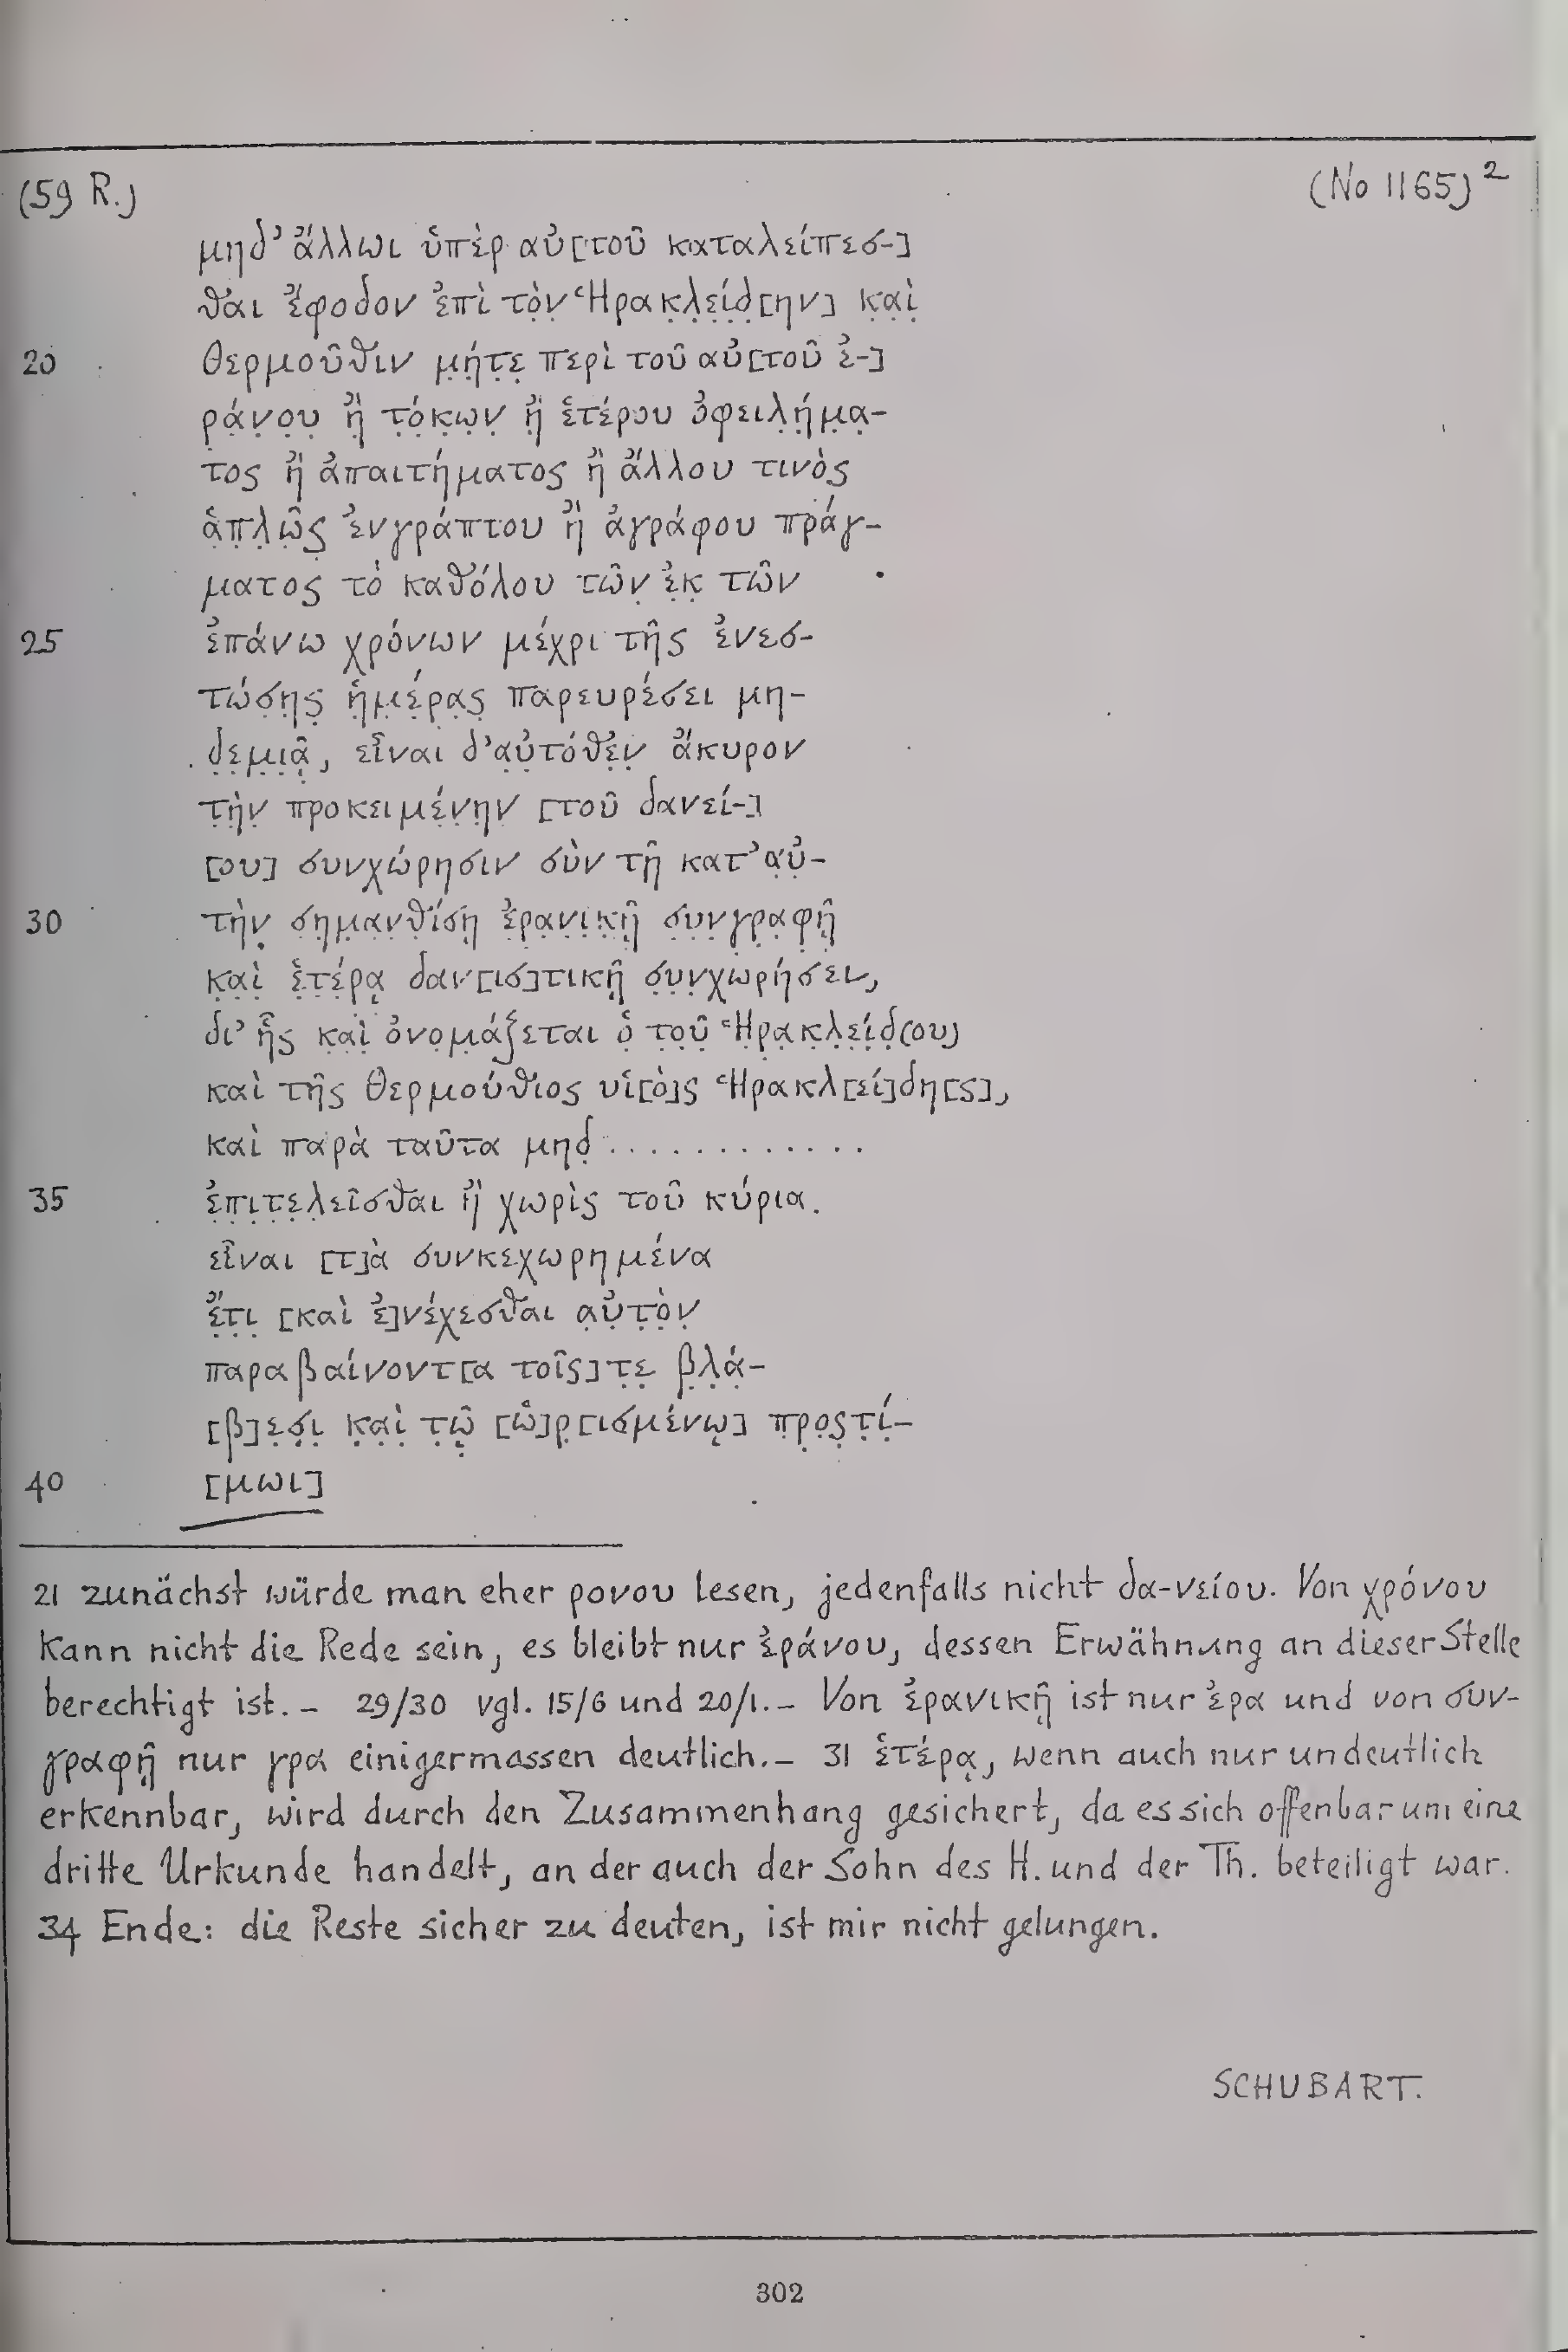 (59 R.) (No 1165)²
μηδ’ ἄλλωι ὑπὲρ αὐ[τοῦ καταλείπεσ-]
θαι ἔφοδον ἐπὶ τὸ̣ν̣ Ἡρακ̣λ̣ε̣ί̣δ̣[ην] κ̣α̣ὶ̣
20 Θερμοῦθιν μ̣ή̣τε̣ περὶ τοῦ αὐ[τοῦ ἐ-]
ρ̣ά̣ν̣ο̣υ̣ ἢ̣ τ̣ό̣κ̣ω̣ν̣ ἢ̣ ἑτέρου ὀφειλ̣ή̣μ̣α̣-
τος ἢ ἀπαιτήματος ἢ ἄλλου τινὸς
ἁ̣π̣λ̣ῶ̣ς̣ ἐνγράπτου ἢ ἀγράφου πράγ-
ματος τὸ καθόλου τῶν̣ ἐ̣κ̣ τῶν
25 ἐπάνω χρόνων μέχρι τῆς ἐνεσ-
τώσ̣η̣ς̣ ἡ̣μ̣έ̣ρ̣α̣ς̣ παρευρέσει μη-
δ̣ε̣μ̣ι̣ᾷ̣, εἶναι δ’ α̣ὐ̣τόθ̣ε̣ν̣ ἄκυρον
τ̣ὴ̣ν̣ προκειμέ̣ν̣η̣ν [τοῦ δανεί-]
[ου] συνχώρησιν σὺν τῇ κατ’ α̣ὐ̣-
30 τὴν̣ σ̣η̣μ̣α̣ν̣θ̣ί̣σ̣ῃ ἐ̣ρ̣α̣ν̣ι̣κ̣ῇ̣ σ̣υ̣ν̣γ̣ρ̣α̣φ̣ῇ̣
κ̣α̣ὶ̣ ἑ̣τ̣έ̣ρ̣ᾳ δαν[ισ]τικῇ̣ σ̣υ̣ν̣χωρήσει,
δι’ ἧς κ̣α̣ὶ̣ ὀνο̣μ̣άζεται ὁ̣ το̣ῦ̣ Ἡ̣ρ̣α̣κ̣λ̣ε̣ί̣δ̣(ου)
καὶ τῆς Θερμούθιος υἱ[ὸ]ς Ἡρακλ[εί]δη[ς],
καὶ παρὰ ταῦτα μηδ̣ . . . . . . . . . . . .
35 ἐ̣π̣ι̣τ̣ε̣λ̣εῖσθαι ἢ χωρὶς τοῦ κύρια.
εἶναι [τ]ὰ συνκεχωρημένα
ἔ̣τ̣ι̣ [καὶ ἐ]νέχεσθαι α̣ὐ̣τ̣ὸ̣ν̣
παραβαίνοντ[α τοῖς] τ̣ε̣ β̣λ̣ά̣-
[β]ε̣σ̣ι̣ κ̣α̣ὶ̣ τ̣ῷ̣ [ὡ]ρ̣[ισμένῳ] π̣ρ̣ο̣ς̣τ̣ί̣-
40 [μωι]
21 zunächst würde man eher ρονου lesen, jedenfalls nicht δα-νείου. Von χρόνου
kann nicht die Rede sein, es bleibt nur ἐράνου, dessen Erwähnung an dieser Stelle
berechtigt ist. – 29/30 vgl. 15/6 und 20/1. – Von ἐρανικῇ ist nur ἐρα und von συν-
γραφῇ nur γρα einigermassen deutlich. – 31 ἑτέρᾳ, wenn auch nur undeutlich
erkennbar, wird durch den Zusammenhang gesichert, da es sich offenbar um eine
dritte Urkunde handelt, an der auch der Sohn des H. und der Th. beteiligt war.
34 Ende: die Reste sicher zu deuten, ist mir nicht gelungen.
SCHUBART.
302